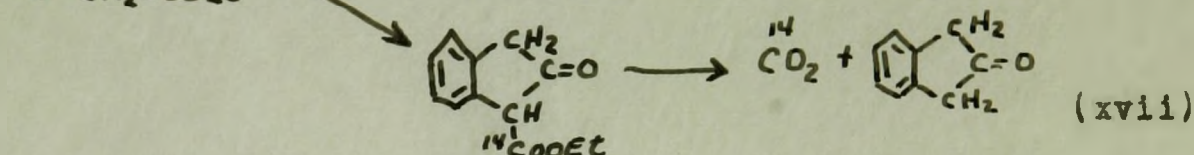 CH2
C=O
CH
14COOEt
14CO2 + CH2
C=O
CH2
(xvii)